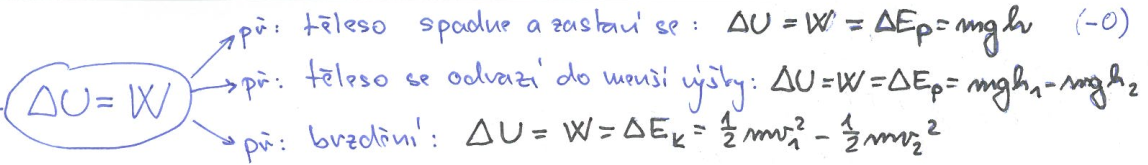 př: těleso spadne a zastaví se: ΔU = W = ΔE_p = mgh (-0)
ΔU = W
př: těleso se odrazí do menší výšky: ΔU = W = ΔE_p = mgh₁ - mgh₂
př: brzdění: ΔU = W = ΔE_k = ½ mv₁² - ½ mv₂²